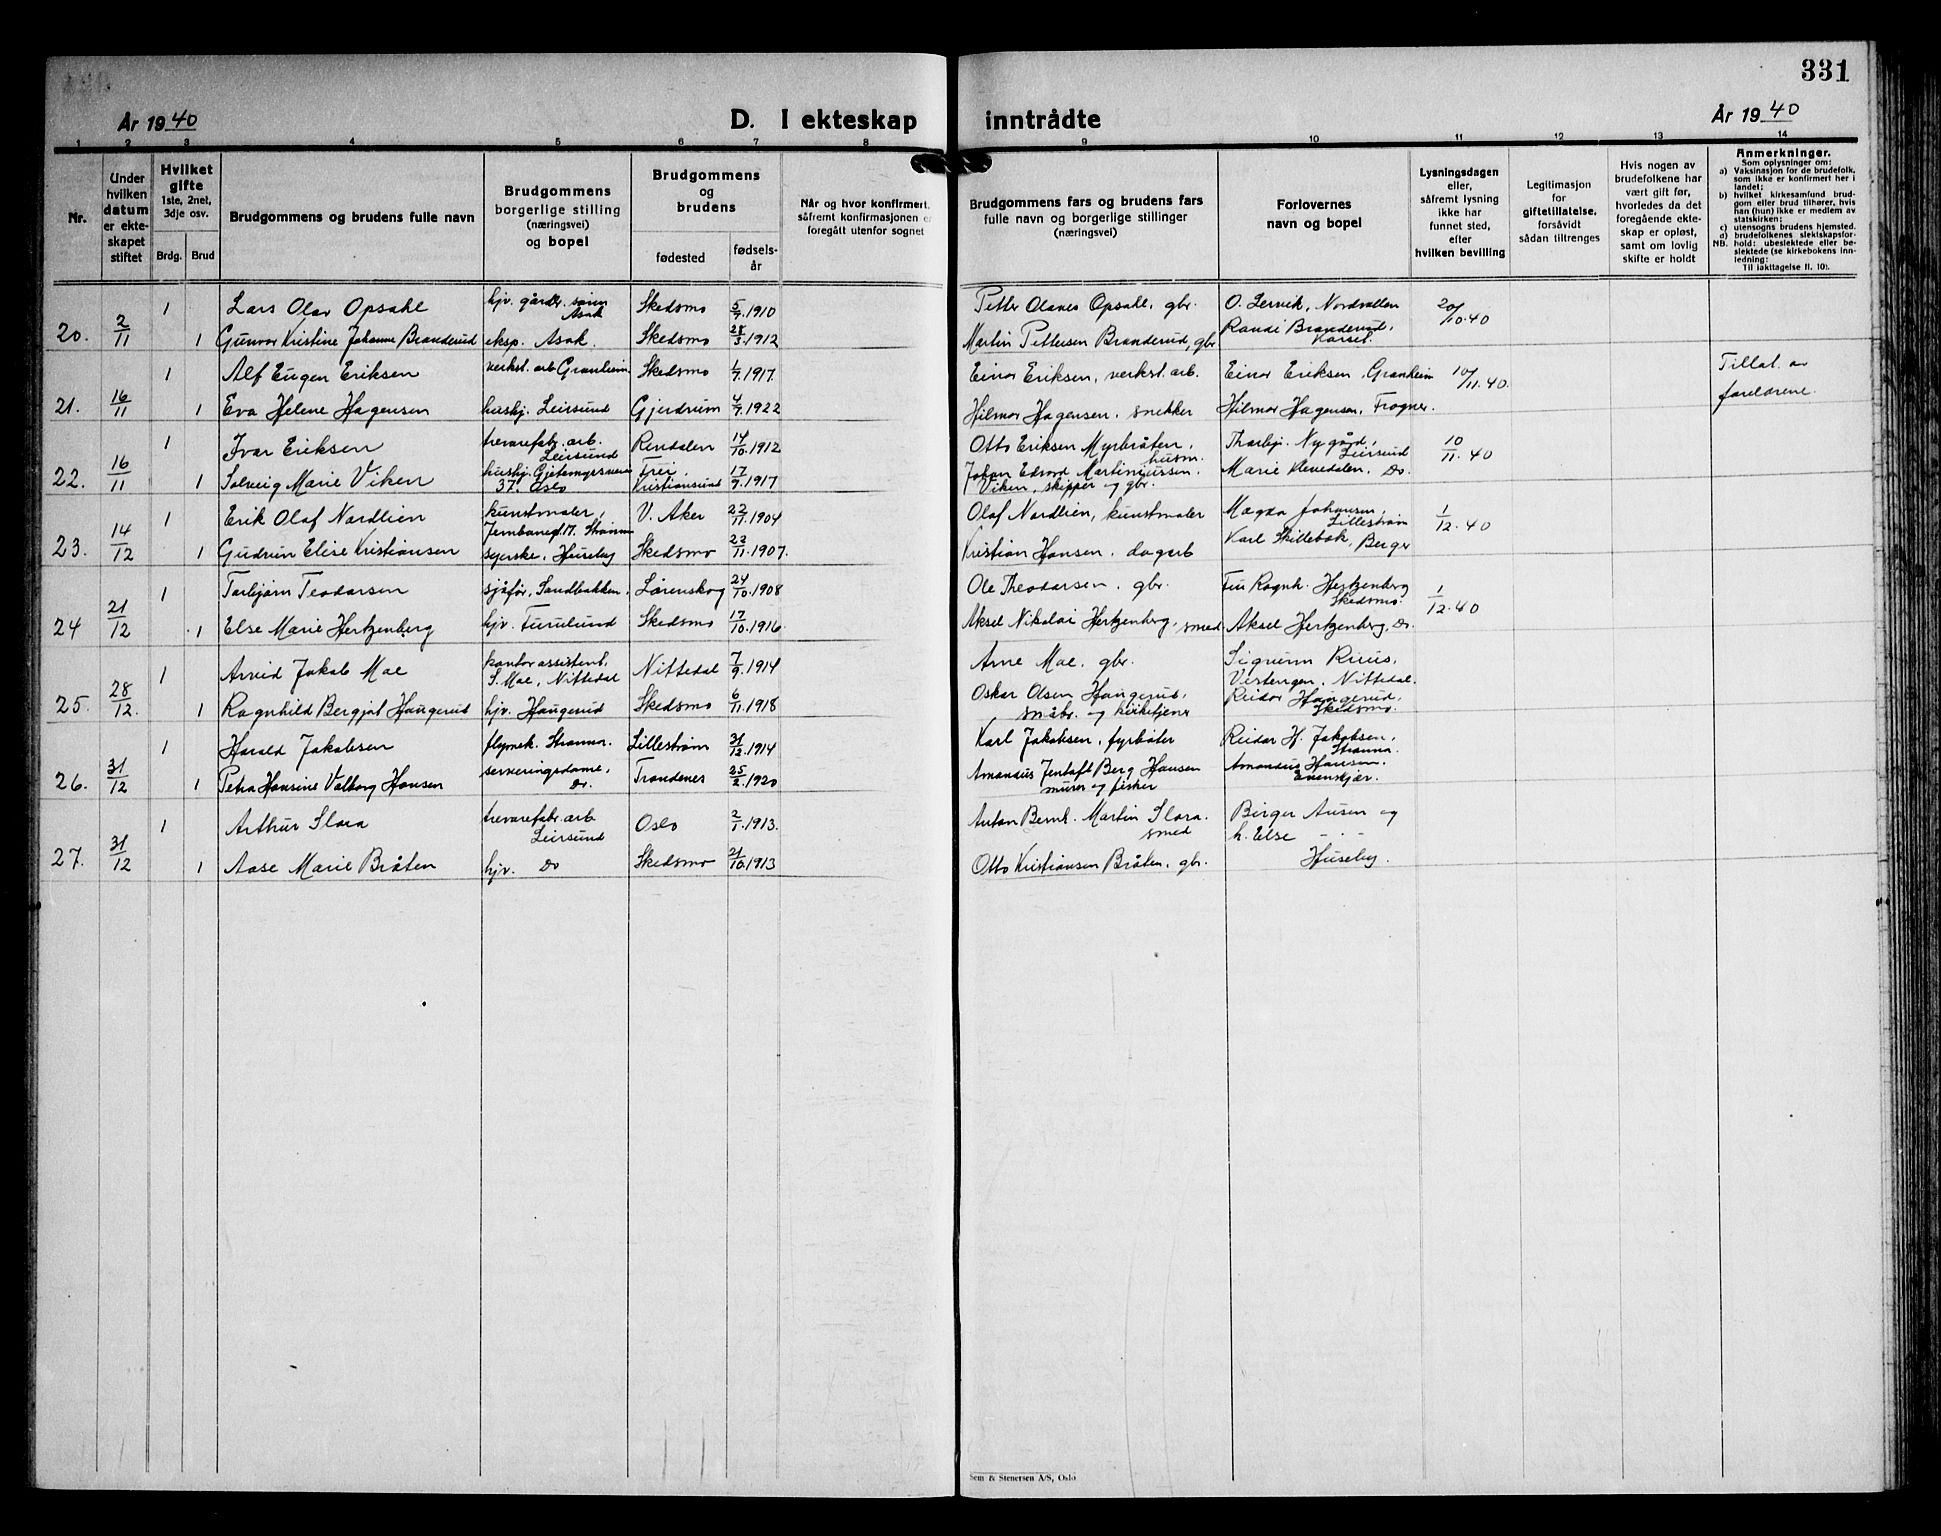 331
År 1940
D. I ekteskap inntrådte
År 1940
1 2 3 4 5 6 7 8 9 10 11 12 13 14
Nr.
Under hvilken datum er ekteskapet stiftet
Hvilket gifte 1ste, 2net, 3dje osv.
Brdg. Brud
Brudgommens og brudens fulle navn
Brudgommens borgerlige stilling (næringsvei) og bopel
Brudgommens og brudens
fødested
fødselsår
Når og hvor konfirmert, såfremt konfirmasjonen er foregått utenfor sognet
Brudgommens fars og brudens fars fulle navn og borgerlige stillinger (næringsvei)
Forlovernes navn og bopel
Lysningsdagen eller, såfremt lysning ikke har funnet sted, efter hvilken bevilling
Legitimasjon for giftetillatelse, forsåvidt sådan tiltrenges
Hvis nogen av brudefolkene har vært gift før, hvorledes da det foregående ekteskap er opløst, samt om lovlig skifte er holdt
Anmerkninger.
Som oplysninger om:
a) Vaksinasjon for de brudefolk, som ikke er konfirmert her i landet;
b) hvilket kirkesamfund brudgom eller brud tilhører, hvis han (hun) ikke er medlem av statskirken;
c) utensogns brudens hjemsted.
d) brudefolkenes slektskapsforhold: ubeslektede eller beslektede (se kirkebokens innledning;
NB.
Til iakttagelse II. 10).
1 Lars Olav Opsahl hjv. gårdbr. sønn Asak Skedsmo 5/7.1910 Petter Olaves Opsahl, gbr. O. Lervik, Nordvollen 20/10.40
20. 2/11 1 Gunvor Kristine Johanne Branderud eksp. Asak. Skedsmo 28/3.1912 Martin Pettersen Branderud, gbr Randi Branderud,
1 Alf Eugen Eriksen verkst. arb Granheim Skedsmo 1/7.1917. Einar Eriksen, verkst. arb. Einar Eriksen, Granheim 10/11.40. Tillat. av foreldrene.
21. 16/11 1 Eva Helene Hagensen hushj. Leirsund Gjerdrum 4/7.1922 Hilmar Hagensen, snekker Hilmar Hagensen, Frogner.
1 Ivar Eriksen trevarefabr. arb. Leirsund Rendalen 14/10.1912 Otto Eriksen Myrbråten, husm. Thorbj. Nygård, Leirsund 10/11.40
22. 16/11 1 Solveig Marie Viken hushj. Gjetemyrsveien 37. Oslo Frei. Kristiansund 17/9.1917 Johan Edvard Martiniussen. Viken, skipper og gbr. Marie Klevedalen, Do.
1 Erik Olaf Nordlien kunstmaler, V. Aker 22/11.1904 Olaf Nordlien, kunstmaler Magda Johansen, Lillestrøm 1/12.40
23. 14/12 1 Gudrun Elise Kristiansen syerske, Huseby Skedsmo 23/11.1907. Kristian Hansen, dagarb Karl Skillebæk, Berger
1 Torbjørn Teodorsen sjåfør, Sandbakken. Lørenskog 24/10.1908 Ole Theodorsen, gbr. Fru Ragnh. Hertzenberg Skedsmo. 1/12.40
24 21/12 1 Else Marie Hertzenberg hjv. Furulund Skedsmo 17/10.1916. Aksel Nikolai Hertzenberg, smed Aksel Hertzenberg, Do.
1 Arvid Jakob Moe kontorassistent, S. Moe, Nittedal Nittedal 7/9.1914 Arne Moe, gbr. Sigrunn Ruus, Vestengen, Nittedal.
25. 28/12. 1 Ragnhild Bergjot Haugerud hjv. Haugerud Skedsmo 6/11.1918 Oskar Olsen Haugerud, småbr. og kirketjener Reidar Haugerud, Skedsmo.
1 Harald Jakobsen flymek. Strømm. Lillestrøm 31/12.1914 Karl Jakobsen, fyrbøter Reidar H. Jakobsen, Strømm.
26. 31/12 1 Petra Hansine Valborg Hansen serveringsdame, Do. Trondenes 25/2.1920 Amandus Jentoft Berg Hansen murer og fisker Amandus Hansen, Evenskjær.
1 Arthur Slora trevarefabr. arb Leirsund Oslo 2/1.1913. Anton Bernt. Martin Slora. smed Birger Ausen og h. Else - . -
27. 31/12 1 Aase Marie Bråten hjv. Do Skedsmo 21/10.1913 Otto Kristiansen Bråten, gbr. Huseby.
Sem & Stenersen A/S, Oslo